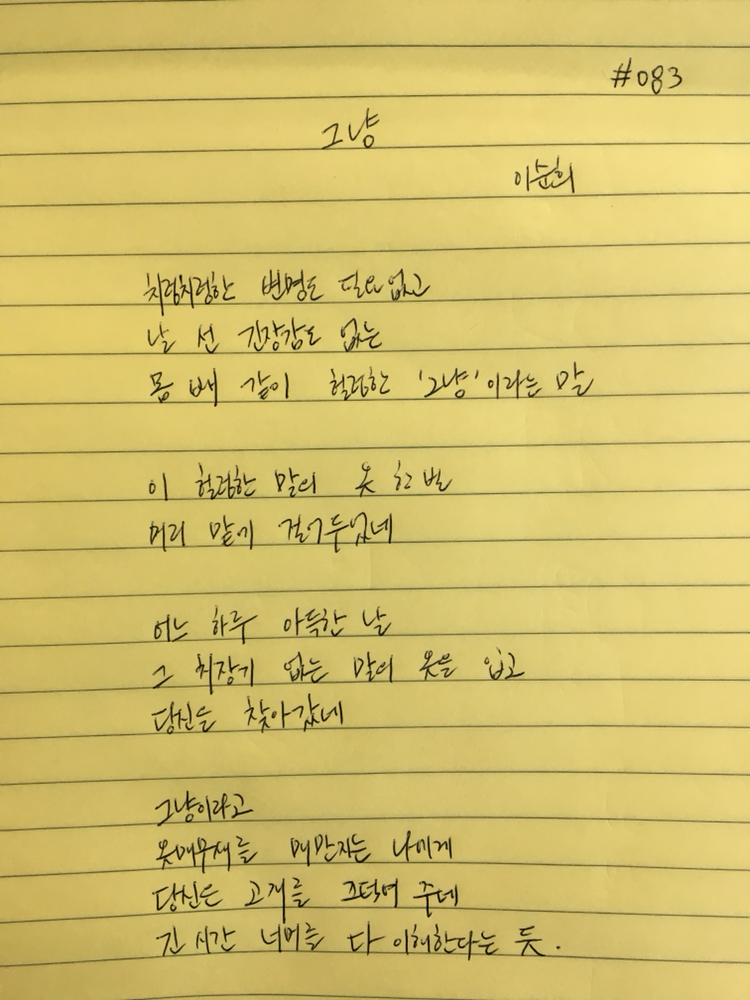 #083
그냥
이순희
치렁치렁한 변명도 필요없고
날 선 긴장감도 없는
몸 빼 같이 헐렁한 '그냥'이라는 말
이 헐렁한 말의 옷 한 벌
머리 맡에 걸어두었네
어느 하루 아득한 날
그 치장기 없는 말의 옷을 입고
당신을 찾아갔네
그냥이라고
옷매무새를 매만지는 나에게
당신은 고개를 끄덕여 주네
긴 시간 너머를 다 이해한다는 듯.